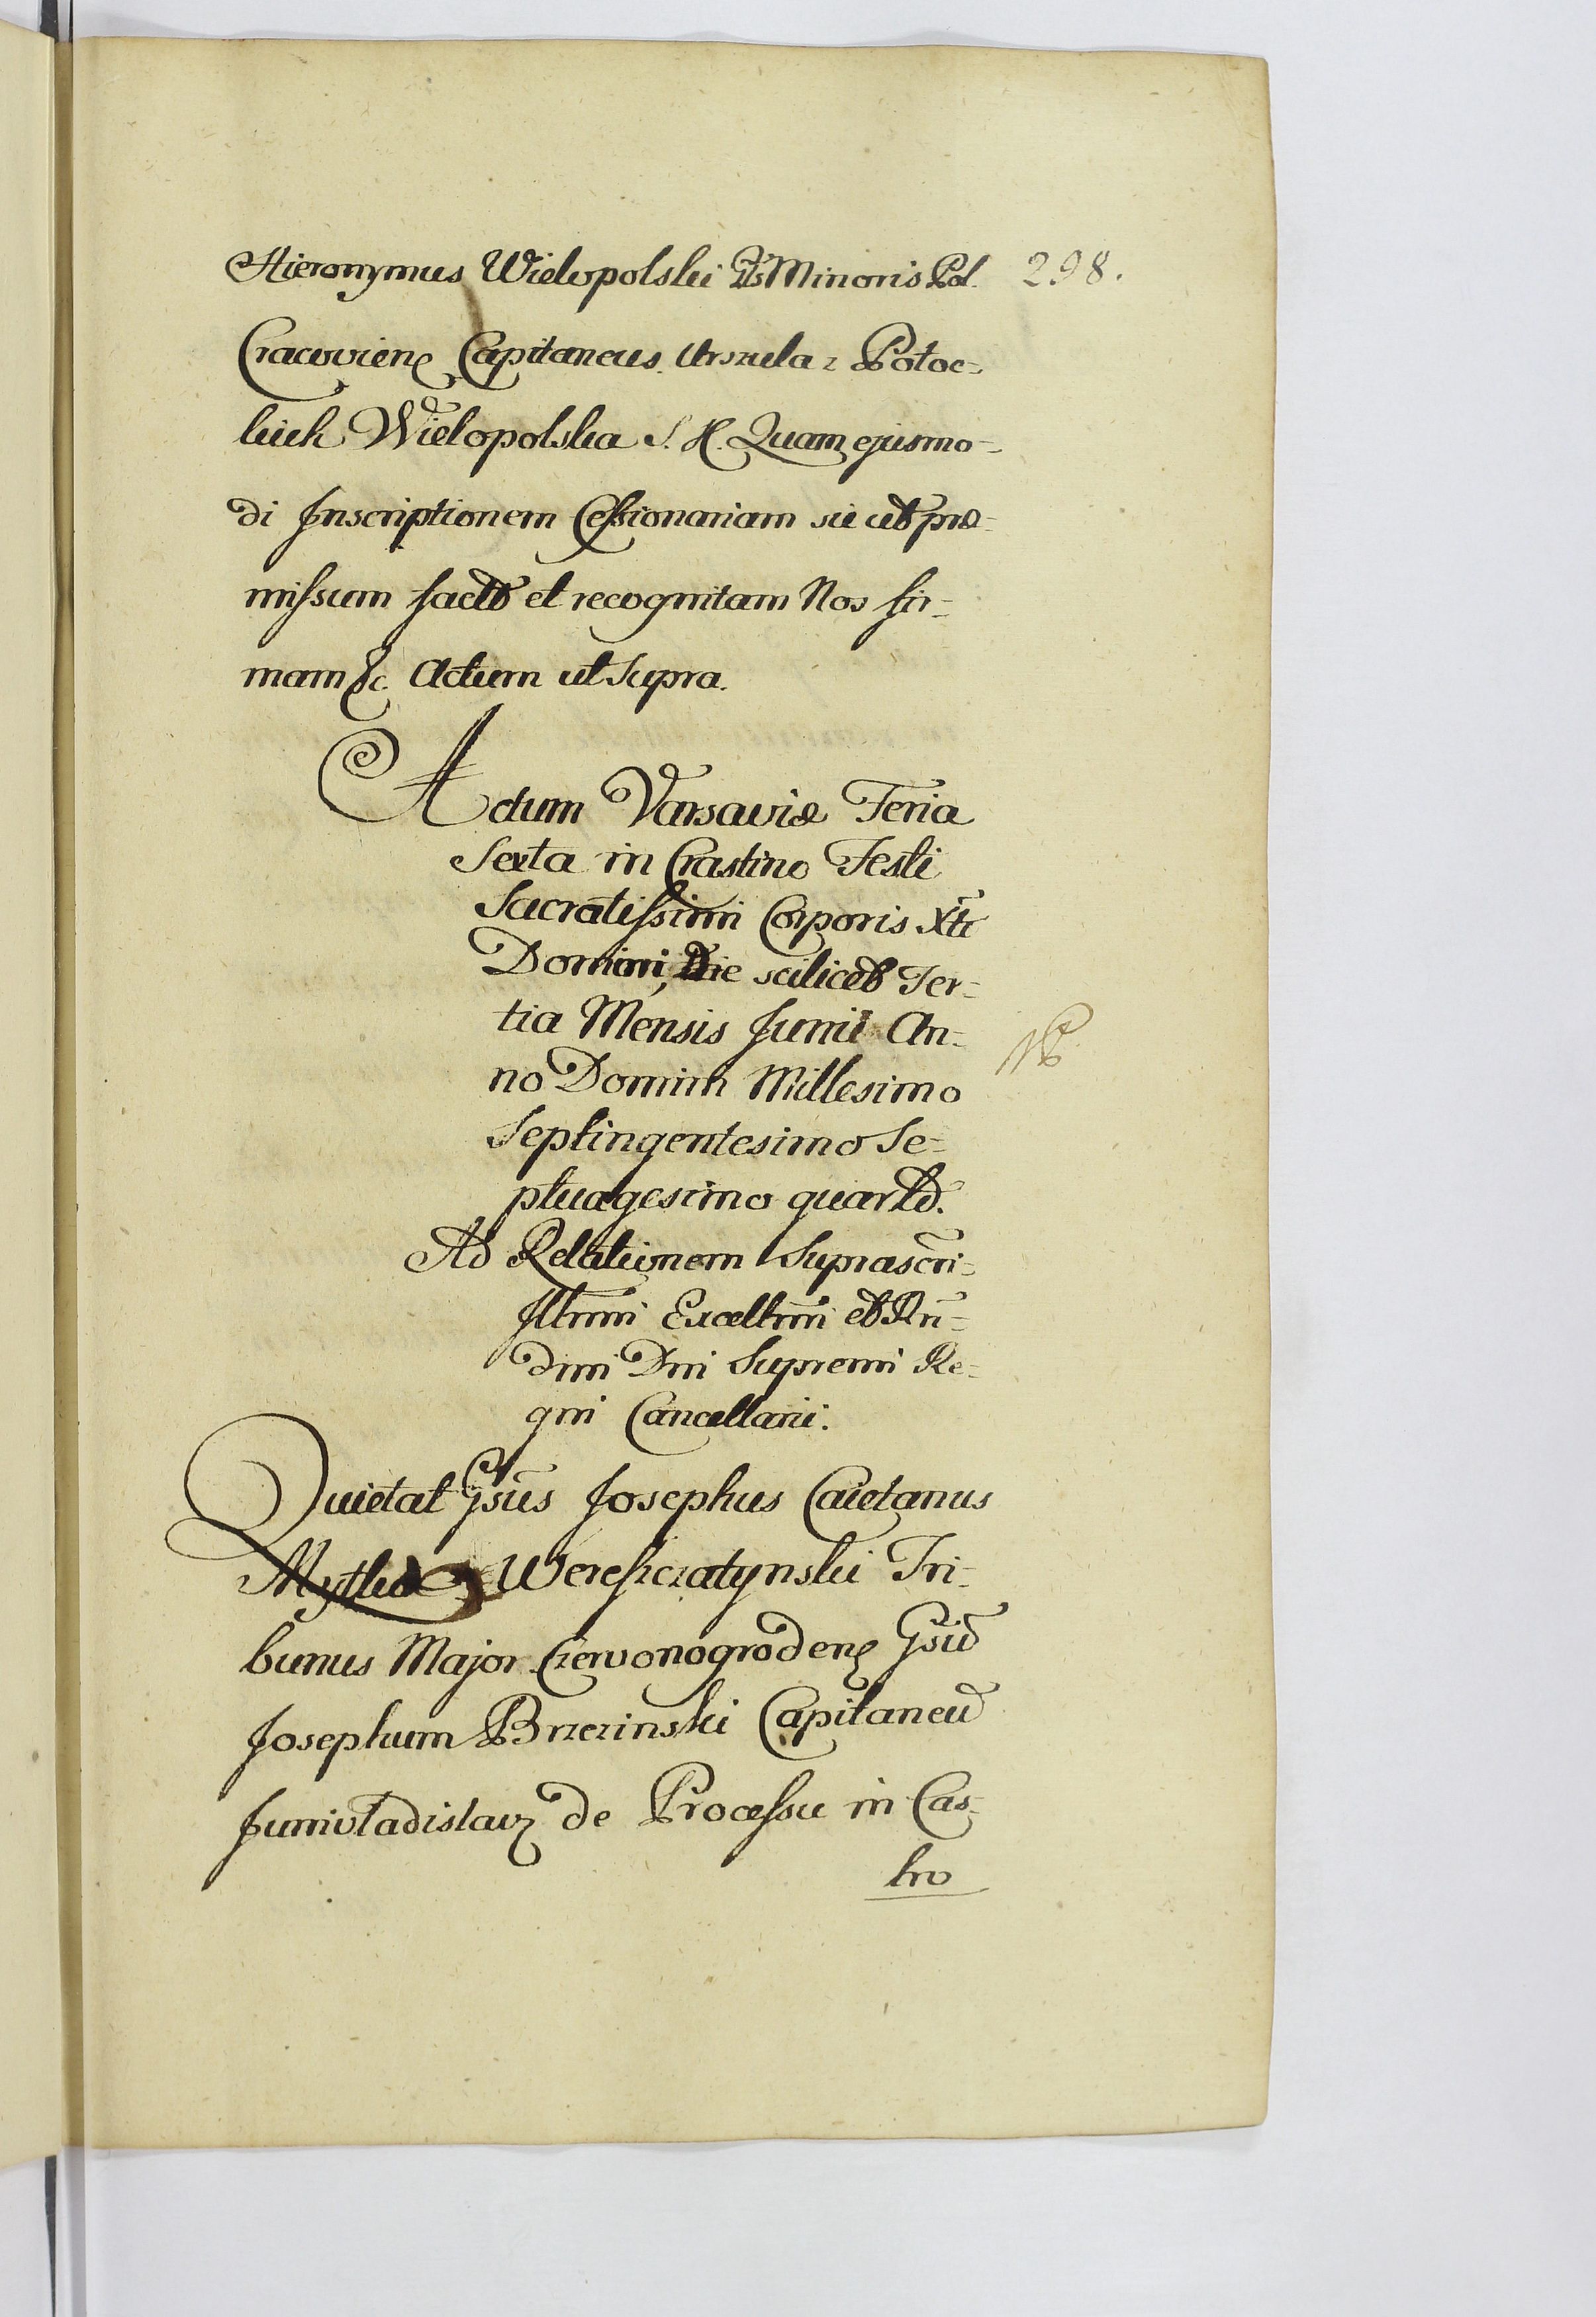 Hieronymus Wielopolski Gls Minoris Pol. 298.
Cracovien Capitaneus. Urszula z Potoc-
kich Wielopolska S. H. Quam ejusmo-
di Inscriptionem Cessionariam sic ut præ-
missum factã et recognitam Nos fir-
mam &c. Actum ut Supra.
Actum Varsaviæ Feria
Sexta in Crastino Festi
Sacratissimi Corporis Xti
Domini, Die scilicet Ter-
tia Mensis Junii An-
no Domini Millesimo
Septingentesimo Se-
ptuagesimo quarto.
Ad Relationem Suprascri-
Illmi Excellmi et Rn-
dmi Dni Supremi Re-
gni Cancellarii.
Quietat Gsus Josephus Caietanus
Mytko Wereszczatynski Tri-
bunus Major Czerwonogroden Gsũ
Josephum Brzezinski Capitaneũ
Juniwladislav de Processu in Cas-
tro